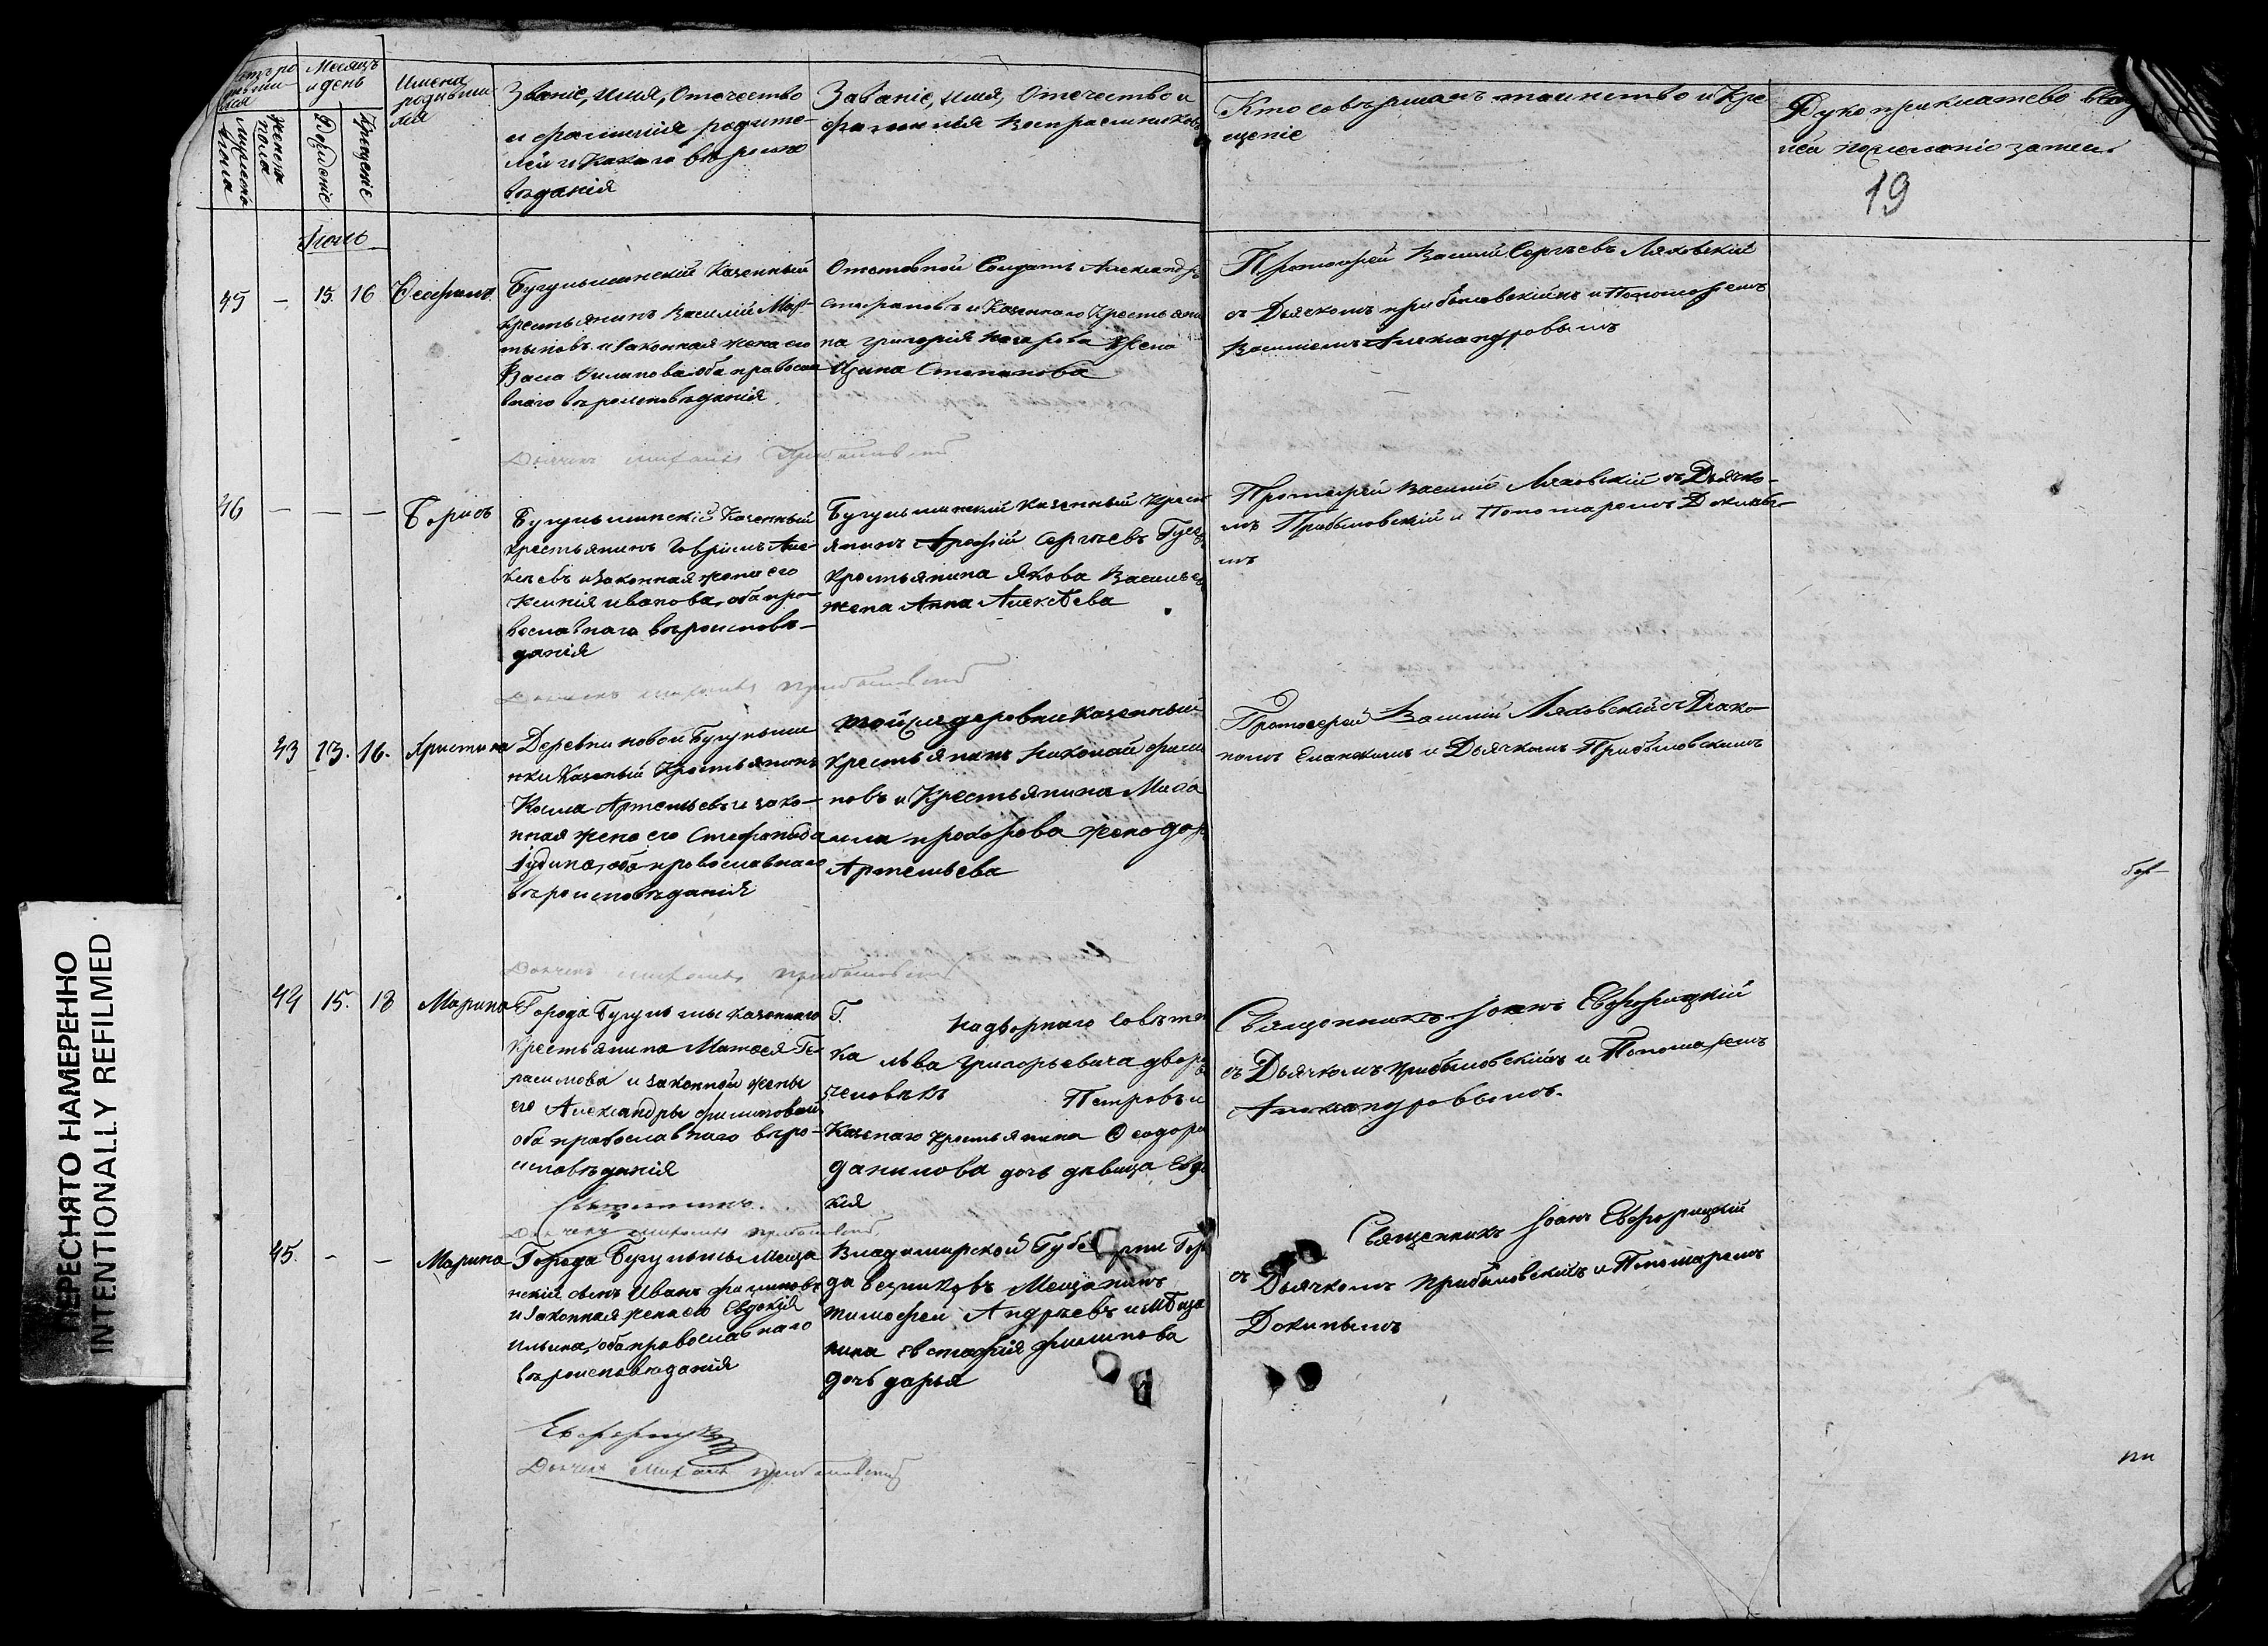 Месяцъ
и день
Имена
родивши
хся
Званіе, имя, Отечество
и фамилия родите-
лей и какого вѣроиспо
вѣданія
Званіе, имя, Отечество и
фамилия Воспрiемниковъ
Кто совѣршалъ таинство и Кре
щеніе
Рукоприкладство
19
Мужеска
пола
женска
пола
Рожденіе
Крещеніе
Іюль
45 — 15. 16
Бугульминскій Казенный
крестьянинъ Василій Мар-
тыновъ и Законная жена его
Васа Филипова оба православ
наго вѣроисповѣданія
Отставной Солдатъ Александръ
и Казеннаго Крестьяни
на григорія жена
Ирина Степанова
Протоіерей Василій Сергѣевъ Ляховскій
съ Дьячкомъ прибыловскимъ и Пономаремъ
Василіемъ Александровымъ
Дьячекъ михаилъ Прибыловскій
46 — — — Борисъ
Бугульминскій Казенный
крестьянинъ Гаврiилъ Але-
ксѣевъ и Законная жена его
Ксенія иванова, оба пра-
вославнаго вѣроисповѣ-
данія
Бугульминскій Казенный Крест
янинъ Сергѣевъ
Крестьянина Якова Васильева
жена Анна Алексѣева
Протоіерей Василій Ляховскій съ Дьячко-
мъ Прибыловскій и Пономаремъ
мъ
Дьячекъ михаилъ прибыловскій
43 13. 16. Христина
Деревни новой Бугульми
нки Казеный Крестьянинъ
Косма Артемьевъ и зако-
нная жена его Стефанида
оба православнаго
вѣроисповѣданія
той же деревни Казенный
крестьянинъ Николай фили
повъ и Крестьянина Миха
ила прохорова жена дар
Артемьева
Протоерей Василій Ляховскій съ Діако-
номъ и Дьячкомъ Прибыловскимъ
Дьячекъ михаилъ прибыловскій
44 15. 18 Марина
Города Бугульмы казеннаго
Крестьянина Матвея Ге-
расимова и законной жены
его Александры филиповой
оба православнаго вѣро-
исповѣданія
Г. Надворнаго Совѣтни
ка льва григорьевича дворо
человѣкъ Петровъ и
Казенаго крестьянина Ѳеодора
данилова дочь дѣвица Евдо
кія
Священникъ Іоанъ Евфорицкій
съ Дьячкомъ прибыловскимъ и Пономаремъ
Александровымъ.
Священникъ
Дьячекъ михаилъ прибыловскій
45. - - Марина
Города Бугульмы Меща
нскій сынъ Иванъ филиповъ
и Законная жена его Евдокія
Ильина, оба православнаго
вѣроисповѣданія
Владимирской Губерніи Горо
да Вязниковъ Мещанинъ
тимофей Андрѣевъ и Мѣща
нина евстафія филипова
дочь дарья
Священникъ Іоанъ Евфорицкій
съ Дьячкомъ прибыловскимъ и Пономаремъ
Дьячекъ михаилъ прибыловскій
ПЕРЕСНЯТО НАМЕРЕННО
INTENTIONALLY REFILMED